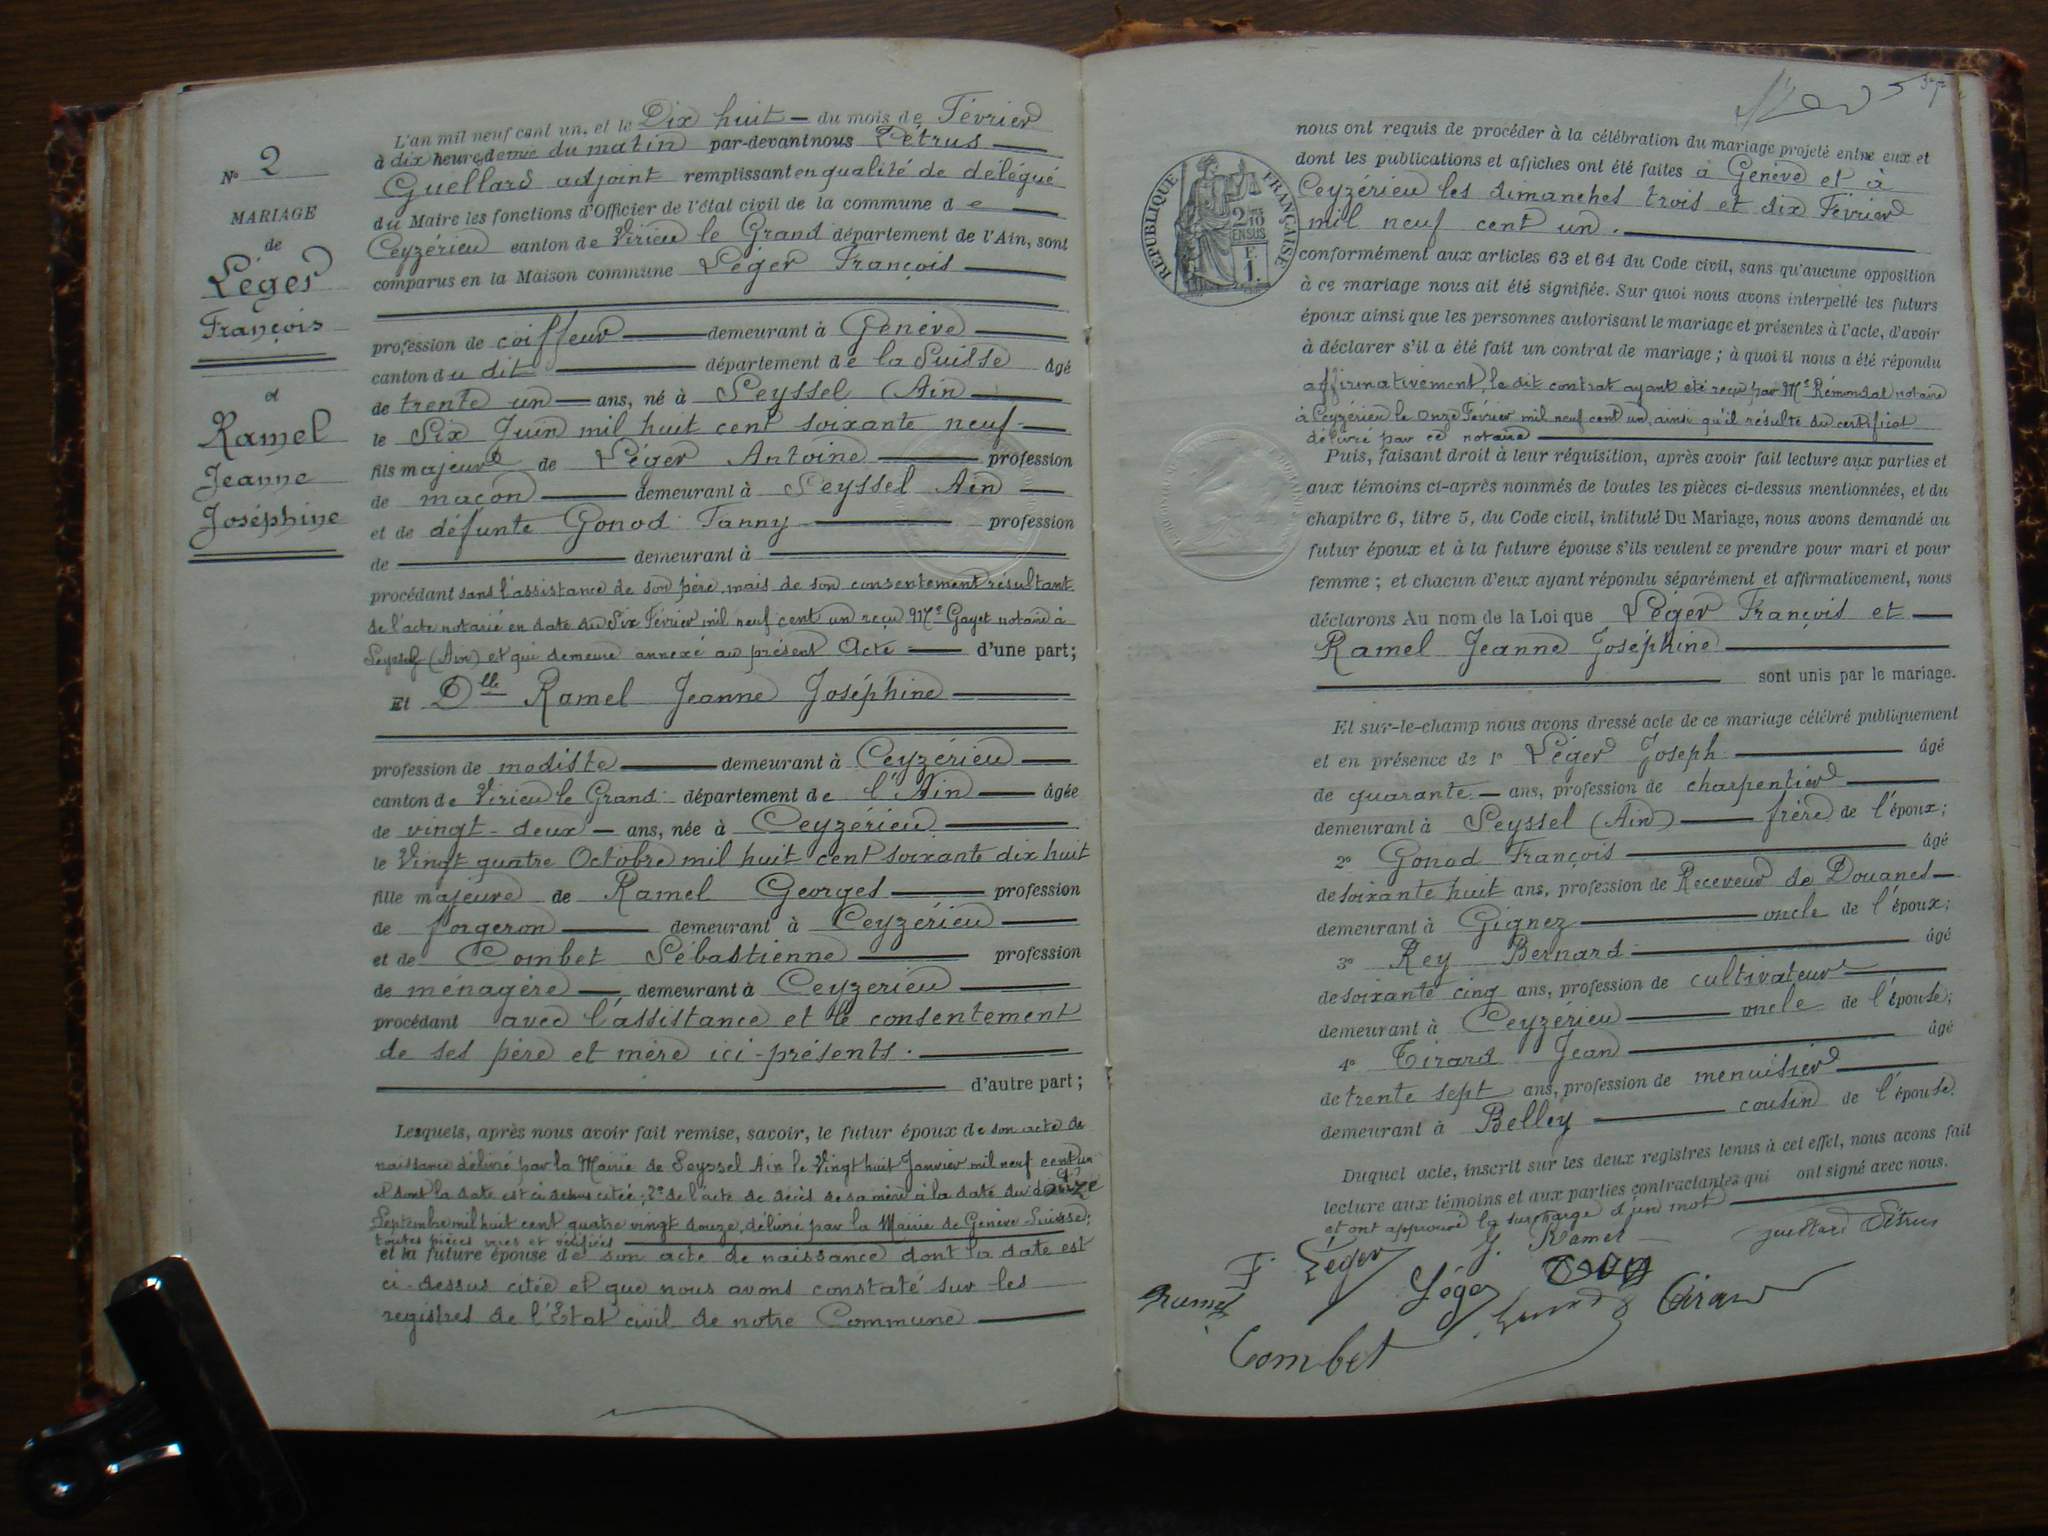 N° 2
MARIAGE
de
Léger
François
et
Ramel
Jeanne
Joséphine
L'an mil neuf cent un, et le Dix huit du mois de Février
à dix heures demie du matin par-devant nous Pétrus
Guellard adjoint remplissant en qualité de délégué
du Maire les fonctions d'Officier de l'état civil de la commune de
Ceyzérieu canton de Virieu le Grand département de l'Ain, sont
comparus en la Maison commune Léger François
profession de coiffeur demeurant à Genève
canton du dit département de la Suisse âgé
de trente un ans, né à Seyssel (Ain
le Six Juin mil huit cent soixante neuf
fils majeur de Léger Antoine profession
de maçon demeurant à Seyssel Ain
et de défunte Gonod Fanny profession
de demeurant à
procédant sans l'assistance de son père mais de son consentement résultant
de l'acte notarié en date du Six Février mil neuf cent un reçu Me Gayet notaire à
Seyssel (Ain) et qui demeure annexé au présent Acte d'une part;
Et Dlle Ramel Jeanne Joséphine
profession de modiste demeurant à Ceyzérieu
canton de Virieu le Grand département de l'Ain âgée
de vingt-deux ans, née à Ceyzérieu
le Vingt quatre Octobre mil huit cent soixante dix huit
fille majeure de Ramel Georges profession
de forgeron demeurant à Ceyzérieu
et de Combet Sébastienne profession
de ménagère demeurant à Ceyzerieu
procédant avec l'assistance et le consentement
de ses père et mère ici-présents.
d'autre part;
Lesquels, après nous avoir fait remise, savoir, le futur époux de son acte de
naissance délivré par la Mairie de Seyssel Ain le Vingt huit Janvier mil neuf cent un
et dont la date est ci dessus citée; 2° de l'acte de décès de sa mère à la date du
Septembre mil huit cent quatre vingt douze, délivré par la Mairie de Genève Suisse;
toutes pièces vues et vérifiées
et la future épouse de son acte de naissance dont la date est
ci-dessus citée et que nous avons constaté sur les
registres de l'Etat civil de notre Commune
37
nous ont requis de procéder à la célébration du mariage projeté entre eux et
dont les publications et affiches ont été faites à Genève et à
Ceyzérieu les dimanches trois et dix Février
mil neuf cent un.
RÉPUBLIQUE FRANÇAISE
conformément aux articles 63 et 64 du Code civil, sans qu'aucune opposition
à ce mariage nous ait été signifiée. Sur quoi nous avons interpellé les futurs
époux ainsi que les personnes autorisant le mariage et présentes à l'acte, d'avoir
à déclarer s'il a été fait un contrat de mariage; à quoi il nous a été répondu
affirmativement, le dit contrat ayant été reçu par Me Rémondat notaire
à Ceyzérieu le onze Février mil neuf cent un, ainsi qu'il résulte du certificat
délivré par ce notaire
Puis, faisant droit à leur réquisition, après avoir fait lecture aux parties et
aux témoins ci-après nommés de toutes les pièces ci-dessus mentionnées, et du
chapitre 6, titre 5, du Code civil, intitulé Du Mariage, nous avons demandé au
futur époux et à la future épouse s'ils veulent se prendre pour mari et pour
femme; et chacun d'eux ayant répondu séparément et affirmativement, nous
déclarons Au nom de la Loi que Léger François et
Ramel Jeanne Joséphine
sont unis par le mariage.
Et sur-le-champ nous avons dressé acte de ce mariage célébré publiquement
et en présence de 1° Léger Joseph âgé
de quarante ans, profession de charpentier
demeurant à Seyssel (Ain) frère de l'époux;
2° Gonod François âgé
de soixante huit ans, profession de Receveur de Douanes
demeurant à Gignez oncle de l'époux;
3° Rey Bernard âgé
de soixante cinq ans, profession de cultivateur
demeurant à Ceyzérieu oncle de l'épouse;
4° Girard Jean âgé
de trente sept ans, profession de menuisier
demeurant à Belley cousin de l'épouse.
Duquel acte, inscrit sur les deux registres tenus à cet effet, nous avons fait
lecture aux témoins et aux parties contractantes qui ont signé avec nous.
et ont approuvé la surcharge d'un mot
F. Léger J. Ramel Guellard Pétrus
Ramel Léger Girard
Combet